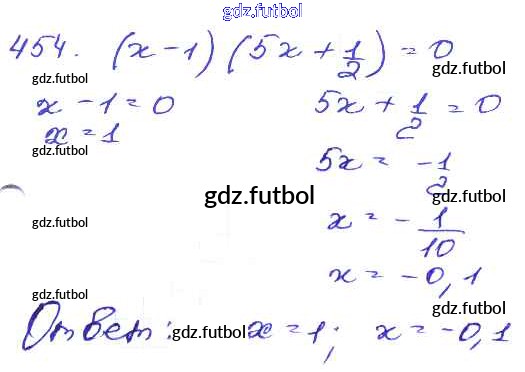 gdz.futbol
454. (x - 1) (5x + 1/2) = 0
gdz.futbol gdz.futbol
x - 1 = 0 5x + 1/2 = 0
x = 1
gdz.futbol gdz.futbol
5x = -1/2
gdz.futbol
gdz.futbol gdz.futbol
x = - 1/10
x = -0,1
gdz.futbol gdz.futbol
Ответ: gdz.futbol x = 1; x = -0,1